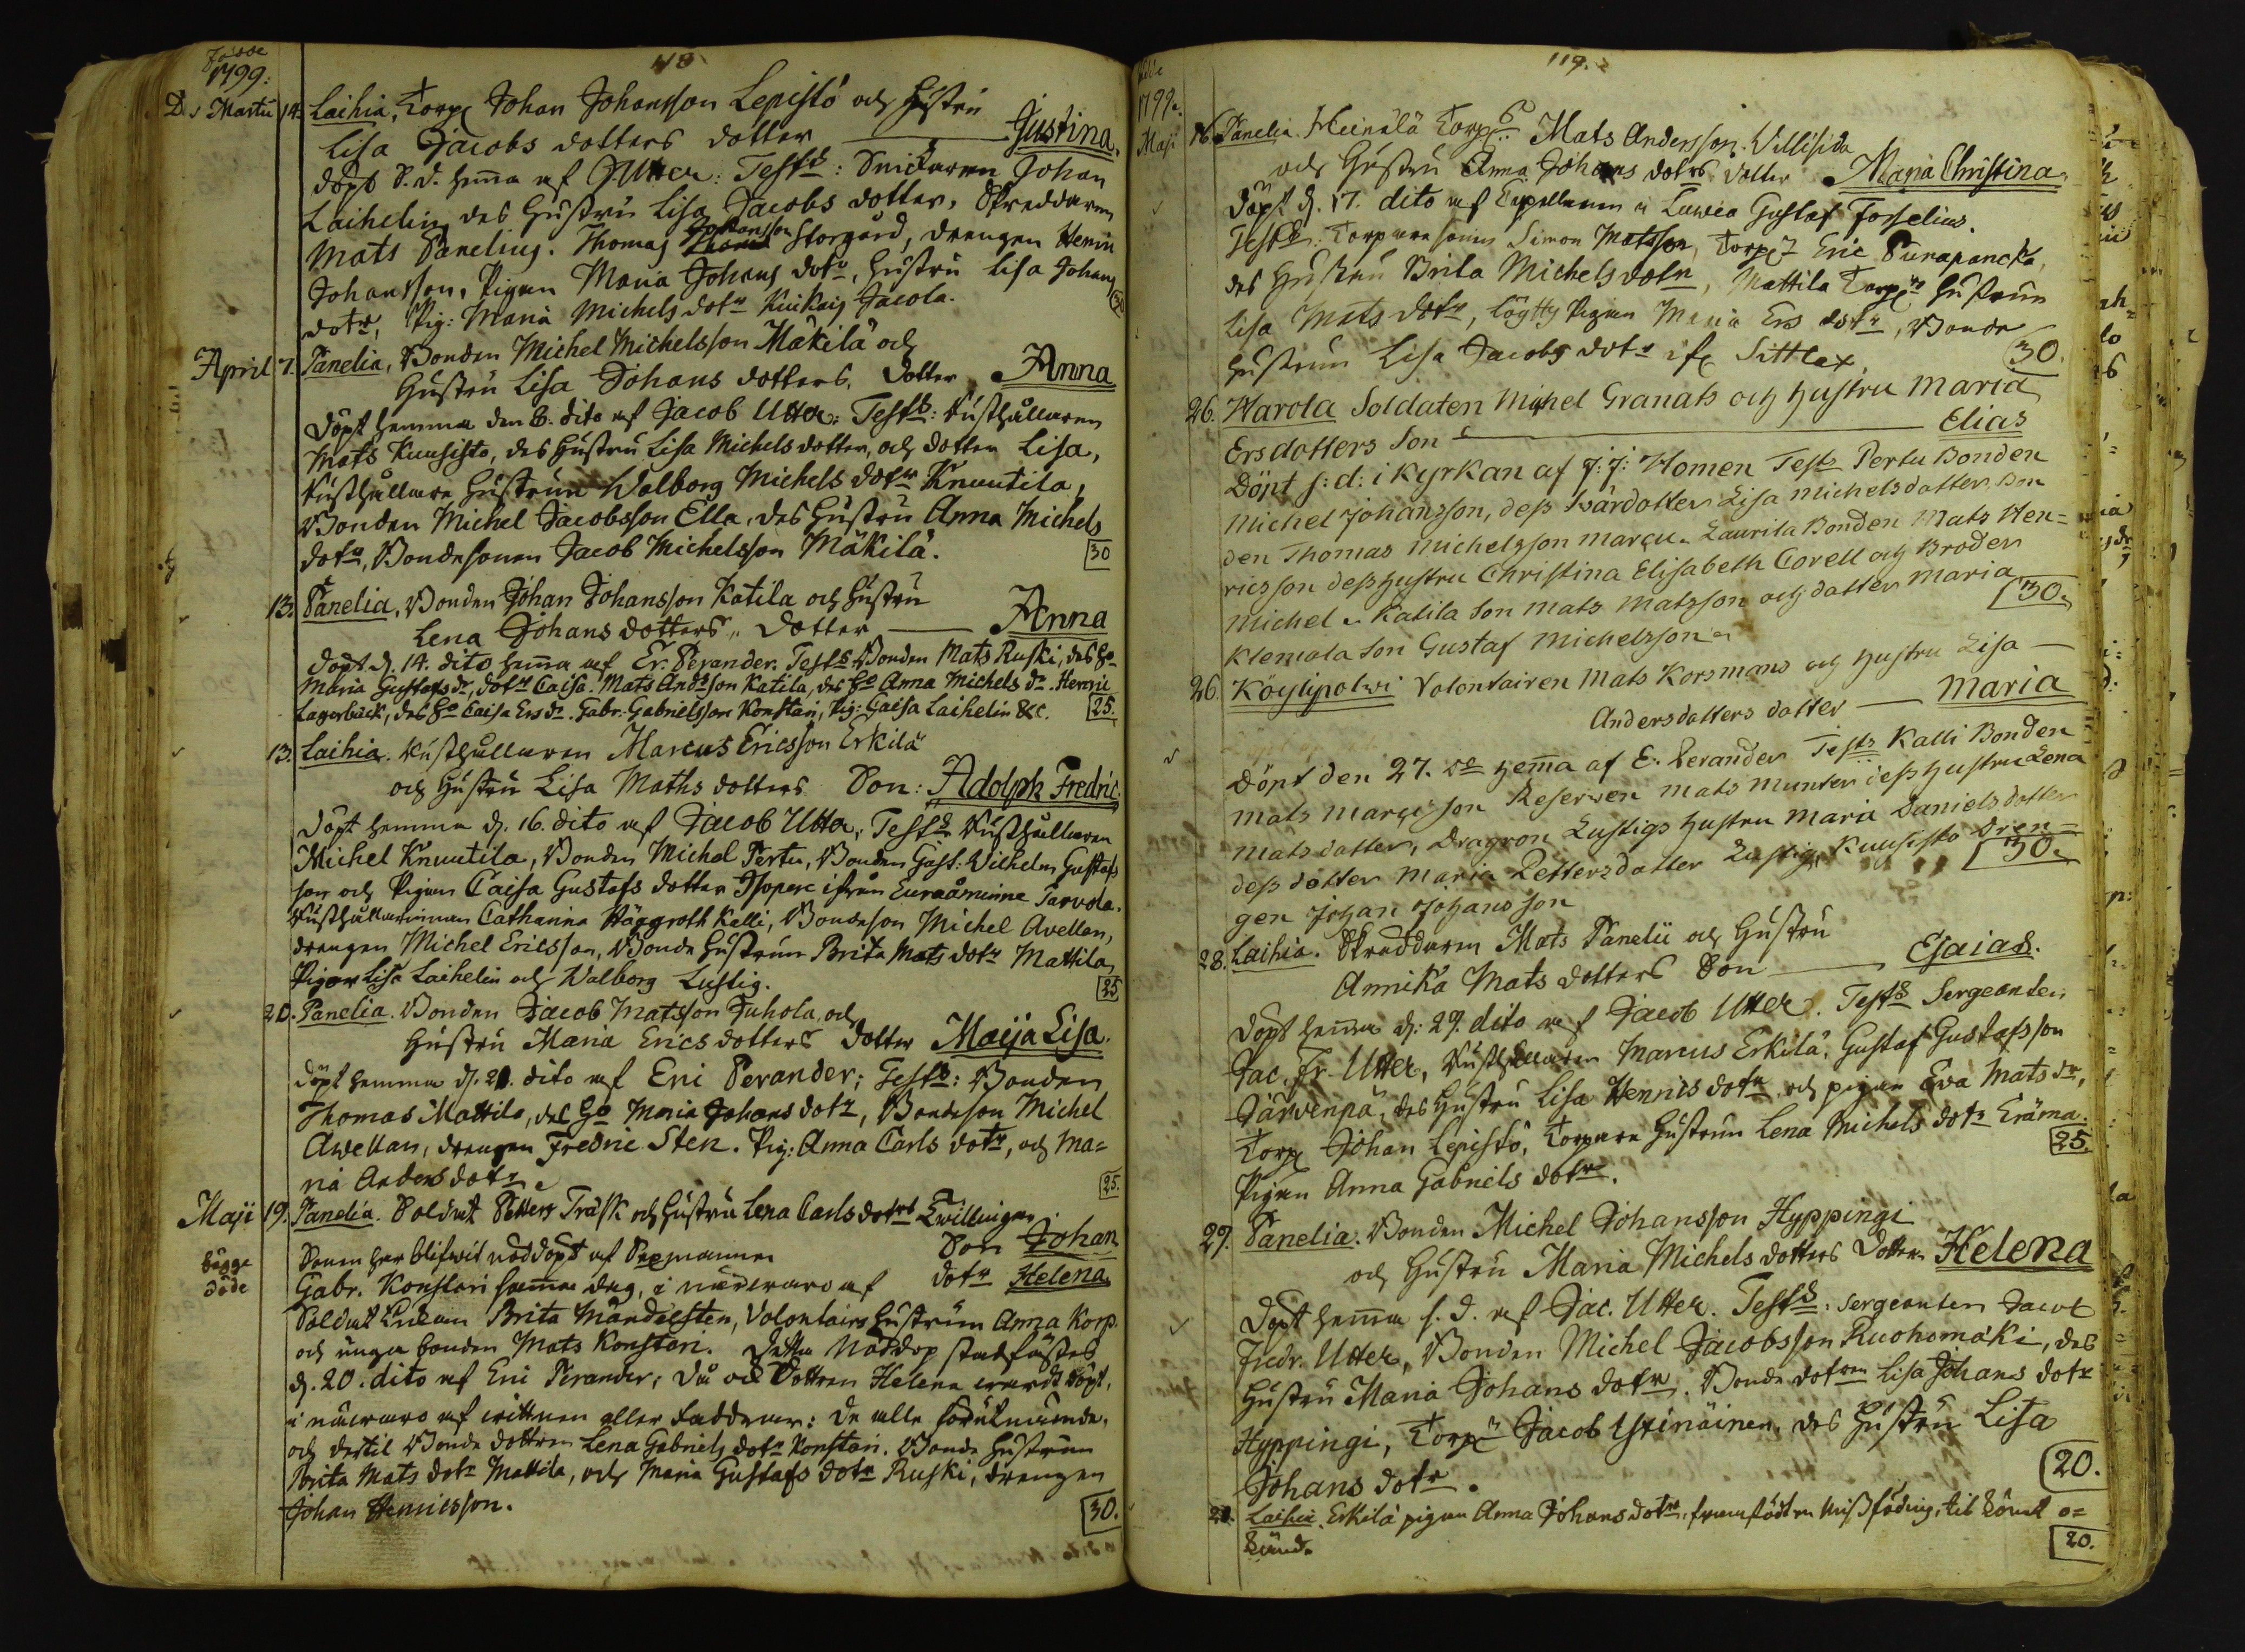 118.
1799.
D. Martii 14. Laihia, Torp. Johan Johansson Lepistö och Hustru
Lisa Jacobs dotters dotter Justina.
döpt S. d. hema af J. Utter: Test: Snickaren Johan
Laihelin, des Hustru Lisa Jacobs dotter, Skreddaren
Mats Panelius. Thomas Johansson Storgård, drengen Henric
Johansson, Pigan Maria Johans dotr, Hustru Lisa Johans
dotr, Pig: Maria Michels dotr Jacola. 30
April 7. Panelia, Bonden Michel Michelsson Mäkilä och
Hustru Lisa Johans dotters, dotter Anna
Döpt hemma den 8. dito af Jacob Utter. Test: Rusthållaren
Mats Kuusisto, des Hustru Lisa Michels dotter, och dotter Lisa,
Rusthållare Hustrun Walborg Michels dotr Knuutila,
Bonden Michel Jacobsson Ella, des Hustru Anna Michels
dotr, Bondesonen Jacob Michelsson Mäkilä. 30
13. Panelia, Bonden Johan Johansson Katila och Hustru
Lena Johans dotters, dotter Anna
döpt d. 14. dito hema af Er. Perander. Test Bonden Mats Ruski, des Ho
Maria Gustafs dr, dotr Caisa. Mats Andsson Katila, des Ho Anna Michels dr. Henric
Lagerbäck, des Ho Caisa Ers dr. Gabr. Gabrielsson Konstari, Pig: Caisa Laihelin &c. 25.
13. Laihia. Rusthållaren Marcus Ericsson Erkilä
och Hustru Lisa Maths dotters Son: Adolph Fredric.
Döpt hemma d. 16. dito af Jacob Utter, Test Rusthållaren
Michel Knuutila, Bonden Michel Pertu, Bonden Gust. Wilhelm Gustafs
son och Pigan Caisa Gustafs dotter ifrån Euraåminne Tarvola.
Rusthållarinnan Catharina Häggroth Kalli, Bondeson Michel Avellan,
drengen Michel Ericsson, Bonde Hustrun Brita Mats dotr Mattila,
Pigor Lisa Laihelin och Walborg Lustig. 25
20. Panelia. Bonden Jacob Matsson Juhola, och
Hustru Maria Erics dotters dotter Maija Lisa.
Döpt hemma d. 21. dito af Eric Perander; Test: Bonden
Thomas Mattila, des Ho Maria Johans dotr, Bondeson Michel
Awellan, drengen Fredric Sten. Pig: Anna Carls dotr, och Ma=
ria Anders dotr. 25.
Maji 19. Panelia. Soldat Petters Träsk och Hustru Lena Carls dotrs Twillingar
Bägge
döde
Som har blifwit nöddöpt af Sexmannen Son Johan
Gabr. Konstari samma dag, i närwaro af dotr Helena
Soldat Enkan Brita Mandelsten, Volontairs Hustrun Anna Korp.
och unga bonden Mats Konstari. Detta Nöddop stadfästes
d. 20. dito af Eric Perander; då ock Dottren Helena wardt döpt,
i närwaro af wittnen eller Faddrar: de alle förutnämnde,
och dertil Bonde dottren Lena Gabriels dotr Konstari. Bonde Hustrun
Brita Mats dotr Mattila, och Maria Gustafs dotr Ruski, drengen
Johan Henricsson. 30.
119.
1799.
Maji 16. Panelia Heinilä Torp. Mats Andersson Villisida
och Hustru Anna Johans dotrs dotter Maria Christina.
Döpt d. 17. dito af Capellanen i Luwia Gustaf Fosselius.
Test: Torpare sonen Simon Matsson, Torp. Eric Purapancka,
des Hustru Brita Michels dotr, Mattila Torp. Hustrun
Lisa Mats dotr, Pigan Maria Ers dotr, Bonde
Hustrun Lisa Jacobs dotr Sittlax. 30.
26. Harola Soldaten Michel Granats och hustru Maria
Ersdotters Son Elias
Döpt s: d: i Kyrkan af J: J: Homen Test Pertu Bonden
Michel Johansson, dess Swärdotter Lisa Michelsdotter Bon
den Thomas Michelsson Marcu. Laurila Bonden Mats Hen=
ricsson dess hustru Christina Elisabeth Corell och Broder
Michel. Katila Son Mats Matsson och dotter Maria
Klemola Son Gustaf Michelsson 30.
26. Köylipolwi Volontairen Mats Korsmans och hustru Lisa
Andersdotters dotter Maria
Döpt den 27. do hemma af E. Perander Test Kalli Bonden
Mats Marcusson Reserven Mats Munter dess hustru Lena
Matsdotter, Dragon Lustigs hustru Maria Danielsdotter
dess dotter Maria Pettersdotter Lustig, Kuusisto Dren=
gen Johan Johansson 30.
28. Laihia. Skreddaren Mats Panelii och Hustru
Annika Mats dotters Son Esaias.
Döpt hema d: 29. dito af Jacob Utter. Test Sergeanten
Jac. Fr. Utter, Rusthållaren Marcus Erkilä, Gustaf Gustafsson
Järvenpä, des Hustru Lisa Henrics dotr och pigan Eva Mats dr,
Torp. Johan Lepistö, Torpare Hustrun Lena Michels dotr Eräma.
Pigan Anna Gabriels dotr. 25.
29. Panelia. Bonden Michel Johansson Hyppingi
och Hustru Maria Michels dotters Dotter Helena
Döpt hema s. d. af Jac. Utter. Test: Sergeanten Jacob
Fredr. Utter, Bonden Michel Jacobsson Ruohomäki, des
Hustru Maria Johans dotr. Bonde dotren Lisa Johans dotr
Hyppingi, Torp. Jacob Ypinäinen, des Hustru Lisa
Johans dotr. 20.
Laihia. Erkilä pigan Anna Johans dotr, framfödt en Missföding, til könet o=
känd. 20.